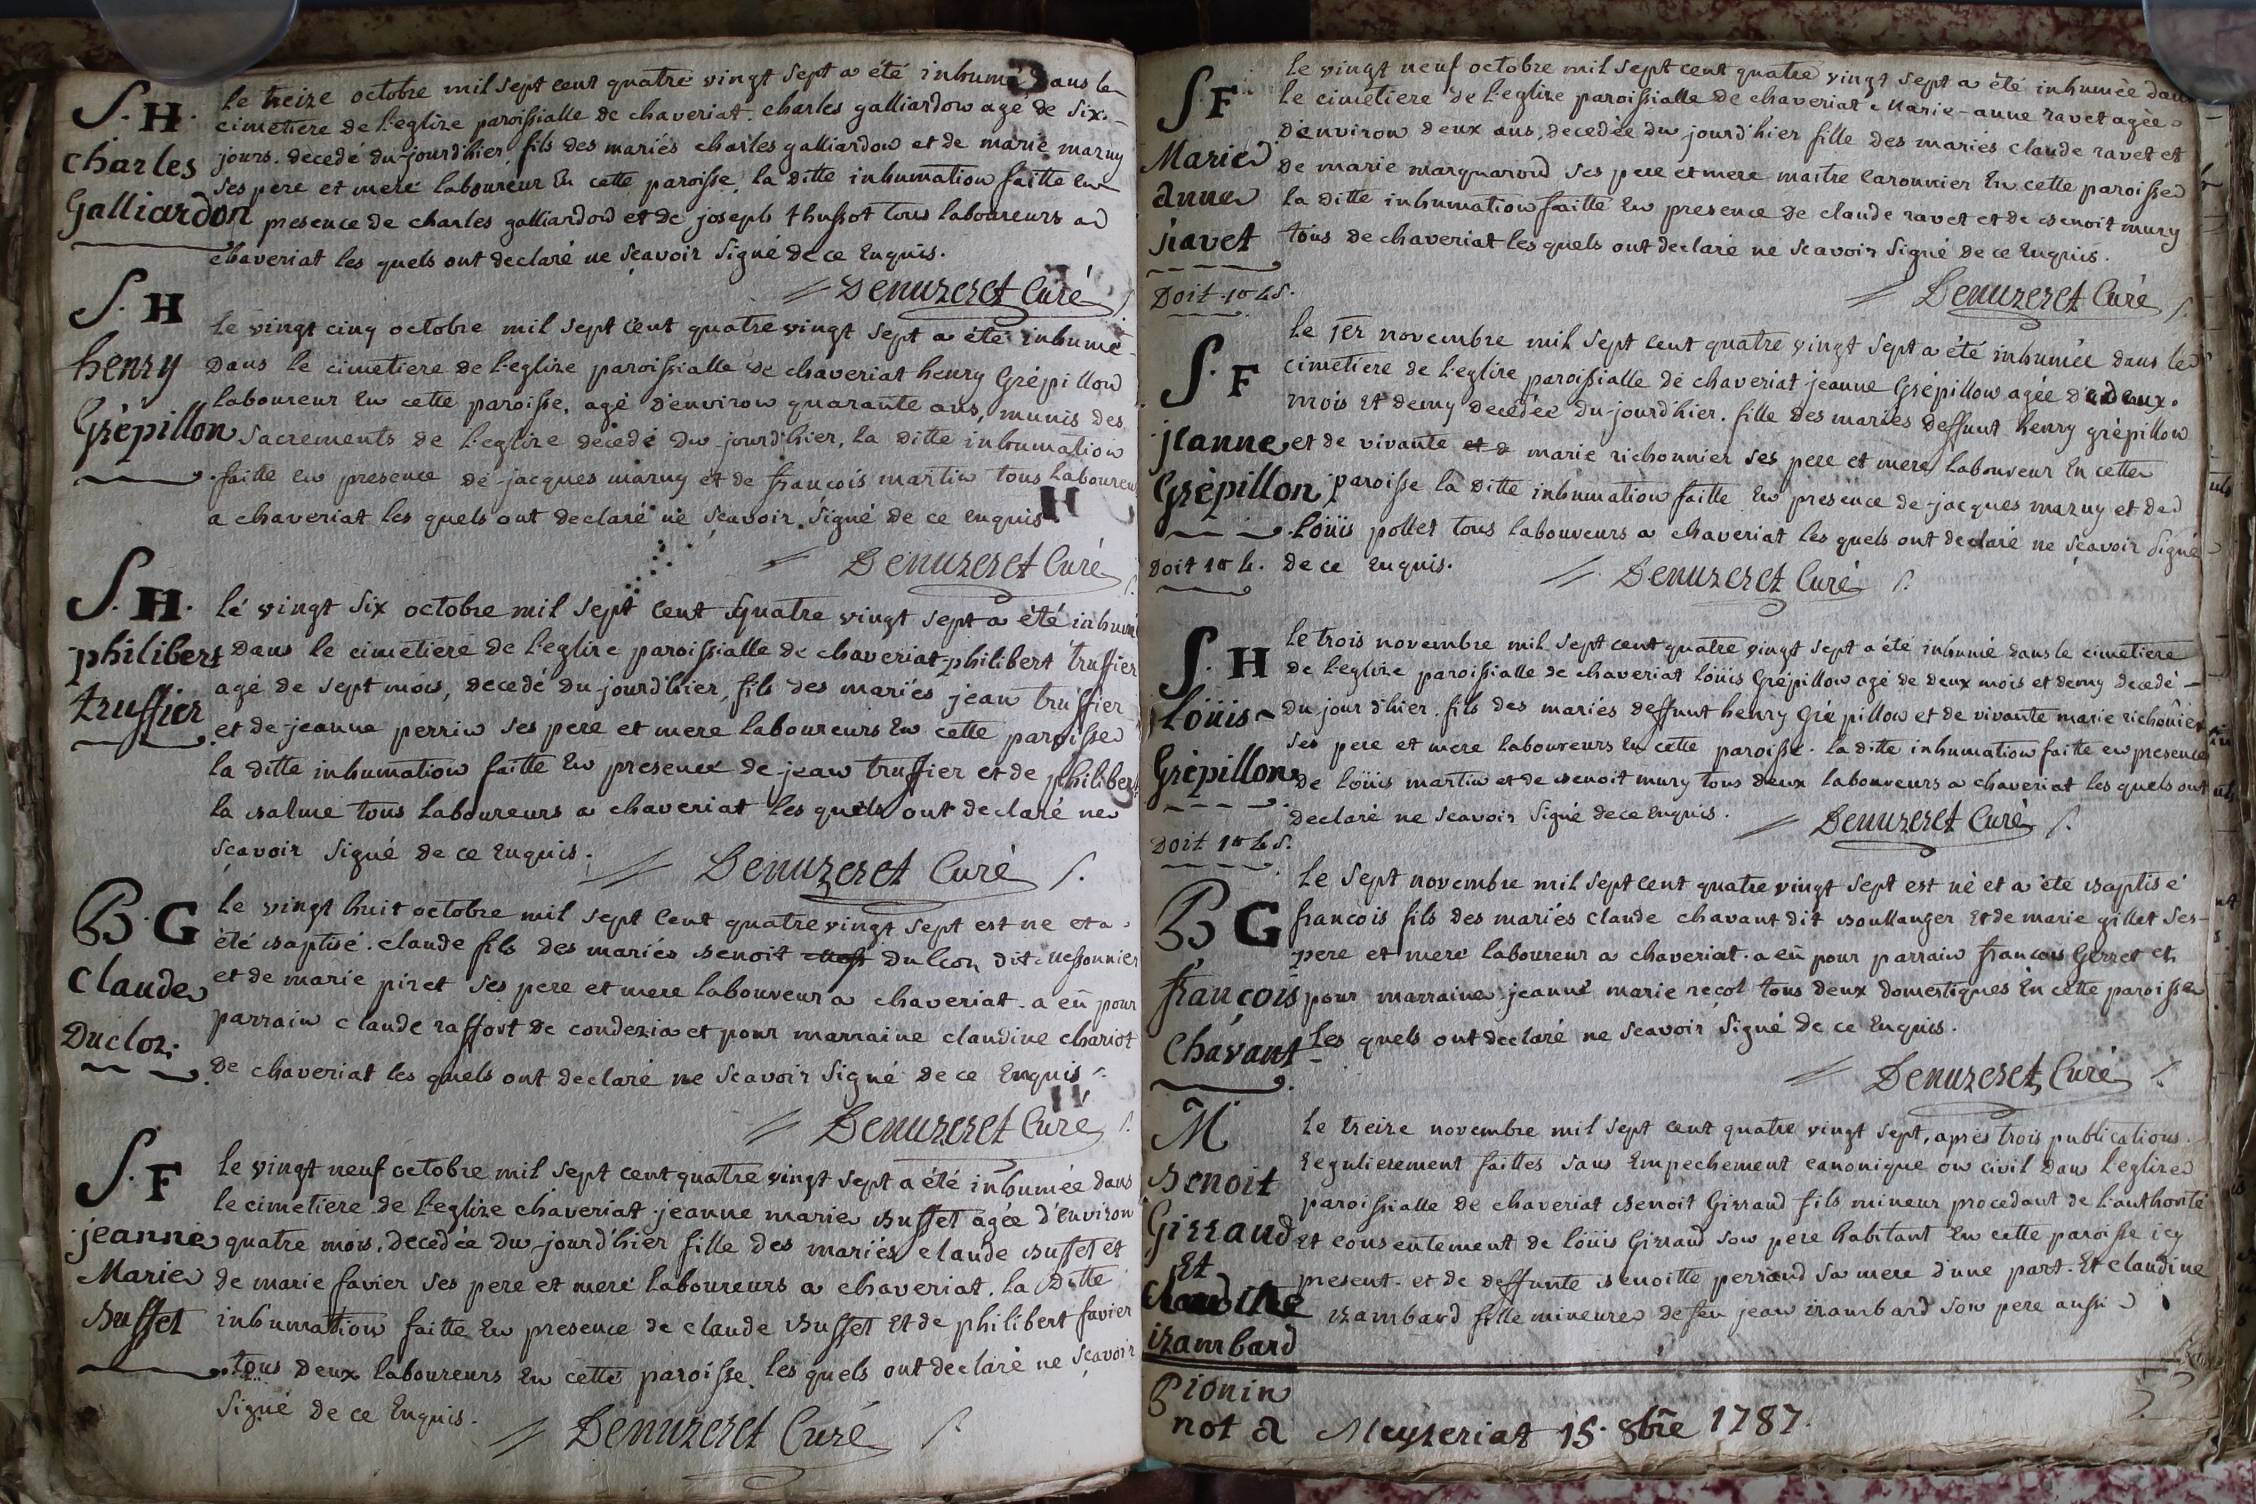 S. H.
charles
Galliardon
le treize octobre mil sept cent quatre vingt sept a été inhumé dans le
cimetiere de l'eglize paroissialle de chaveriat. charles galliardon agé de six
jours. decedé du-jourd'hier, fils des mariés charles galliardon et de marie mazuy
ses pere et mere laboureur en cette paroisse, la ditte inhumation faitte en
presence de charles galliardon et de joseph thussot tous laboureurs a
chaveriat les quels ont declaré ne scavoir signé de ce enquis.
Denuzeret Curé
S. H
henry
Grépillon
le vingt cinq octobre mil sept cent quatre vingt sept a été inhumé
dans le cimetiere de l'eglize paroissialle de chaveriat henry Grépillon
laboureur en cette paroisse, agé d'environ quarante ans, munis des
sacrements de l'eglize decedé du jourd'hier, la ditte inhumation
faitte en presence de jacques mazuy et de francois martin tous laboureurs
a chaveriat les quels ont declaré ne scavoir signé de ce enquis
Denuzeret Curé
S. H.
philibert
truffier
le vingt six octobre mil sept cent quatre vingt sept a été inhumé
dans le cimetiere de l'eglize paroissialle de chaveriat philibert truffier
agé de sept mois, decedé du jourd'hier, fils des mariés jean truffier
et de jeanne perrin ses pere et mere laboureurs en cette paroisse
la ditte inhumation faitte en presence de jean truffier et de philibert
la balme tous laboureurs a chaveriat les quels ont declaré ne
scavoir signé de ce enquis.
Denuzeret Curé
B. G
claude
Ducloz.
le vingt huit octobre mil sept cent quatre vingt sept est ne et a
été baptisé. claude fils des mariés benoit du clou dit messonnier
et de marie piret ses pere et mere laboureur a chaveriat. a eû pour
parrain claude raffort de condezia et pour marraine claudine chariot
de chaveriat les quels ont declaré ne scavoir signé de ce enquis
Denuzeret Curé
S. F
jeanne
Marie
buffet
le vingt neuf octobre mil sept cent quatre vingt sept a été inhumée dans
le cimetiere de l'eglize chaveriat jeanne marie buffet agée d'environ
quatre mois. decedée du-jourd'hier fille des mariés claude buffet et
de marie favier ses pere et mere laboureurs a chaveriat. la ditte
inhumation faitte en presence de claude buffet et de philibert favier
tous deux laboureurs en cette paroisse, les quels ont declaré ne scavoir
signé de ce enquis.
Denuzeret Curé
S. F
Marie
anne
ravet
Doit 10 L s.
le vingt neuf octobre mil sept cent quatre vingt sept a été inhumée dans
le cimetiere de l'eglize paroissialle de chaveriat Marie-anne ravet agée
d'environ deux ans, decedée du jourd'hier fille des mariés claude ravet et
de marie marquarond ses pere et mere maitre caronnier en cette paroisse
la ditte inhumation faitte en presence de claude ravet et de benoit mury
tous de chaveriat les quels ont declaré ne scavoir signé de ce enquis.
Denuzeret Curé
S. F
jeanne
Grépillon
Doit 10 L.
le 1er novembre mil sept cent quatre vingt sept a été inhumée dans le
cimetiere de l'eglize paroissialle de chaveriat jeanne Grépillon agée de deux
mois et demy decedée du-jourd'hier. fille des mariés deffunt henry grépillon
et de vivante et d marie richonnier ses pere et mere laboureur en cette
paroisse la ditte inhumation faitte en presence de jacques mazuy et de
loüis pollet tous laboureurs a chaveriat les quels ont declaré ne scavoir signé
de ce enquis.
Denuzeret Curé
S. H
loüis
Grépillon
Doit 10 L s.
le trois novembre mil sept cent quatre vingt sept a été inhumé dans le cimetiere
de l'eglize paroissialle de chaveriat loüis Grépillon agé de deux mois et demy decedé
du jour d'hier. fils des mariés deffunt henry Grépillon et de vivante marie richonier
ses pere et mere laboureurs en cette paroisse. la ditte inhumation faitte en presence
de loüis martin et de benoit mury tous deux laboureurs a chaveriat les quels ont
declaré ne scavoir signé de ce enquis.
Denuzeret Curé
B G
françois
Chavant
le sept novembre mil sept cent quatre vingt sept est né et a été baptisé
francois fils des mariés claude chavant dit boullanger et de marie gillet ses
pere et mere laboureur a chaveriat. a eû pour parrain francois Gerret et
pour marraine jeanne marie reçot tous deux domestiques en cette paroisse
les quels ont declaré ne scavoir signé de ce enquis.
Denuzeret Curé
M
benoit
Girraud
Et
claudine
izambard
le treize novembre mil sept cent quatre vingt sept, aprés trois publications
regulierement faittes sans empechement canonique ou civil dans l'eglize
paroissialle de chaveriat benoit Girraud fils mineur procedant de l'authorité
et consentement de loüis Girraud son pere habitant en cette paroisse icy
present. et de deffunte benoitte perraud sa mere d'une part. Et claudine
izambard fille mineure de feu jean izambard son pere aussi
Pionin
not a Meyzeriat 15. 8bre 1787.